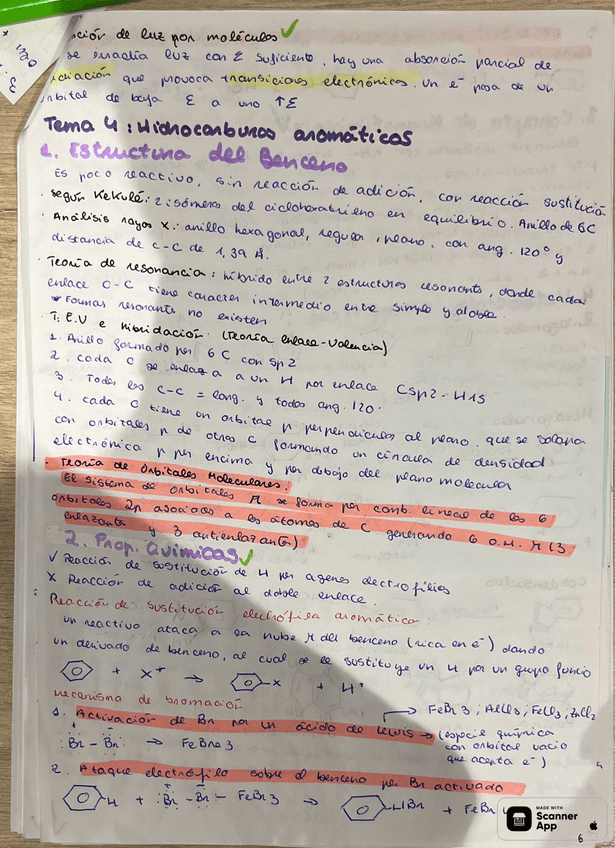 ción de luz por moléculas ✓
se irradia luz con E suficiente, hay una absorción parcial de
radiación que provoca transiciones electrónicas. Un e⁻ pasa de un
orbital de baja E a uno ↑E
Tema 4: Hidrocarburos aromáticos
1. Estructura del Benceno
Es poco reactivo, sin reacción de adición, con reacción sustitución
· Según Kekulé: 2 isómeros del ciclohexatrieno en equilibrio. Anillo de 6C
· Análisis rayos X: anillo hexagonal, regular, plano, con ang. 120° y
distancia de C-C de 1,39 Å.
· Teoría de resonancia: híbrido entre 2 estructuras resonants, donde cada
enlace C-C tiene caracter intermedio entre simple y doble.
* Formas resonants no existen
· T. E.V e hibridación. (Teoría enlace-Valencia)
1. Anillo formado por 6 C con Sp2
2. cada C se enlaza a un H por enlace Csp2 - H1S
3. Todos los C-C = long. y todos ang. 120.
4. cada C tiene un orbital p perpendicular al plano, que se solapa
con orbitales p de otros C formando un círculo de densidad
electrónica π por encima y por debajo del plano molecular
· Teoría de Orbitales Moleculares.
El sistema de orbitales π se forma por comb. lineal de los 6
orbitales 2p asociados a los átomos de C generando 6 O.M. π (3
enlazants y 3 antienlazants)
2. Prop. Químicas ✓
✓ Reacción de sustitución de H por agenes electrofílios
X Reacción de adición al doble enlace.
Reacción de sustitución electrófila aromática:
un reactivo ataca a la nube π del benceno (rica en e⁻) dando
un derivado de benceno, al cual se le sustituye un H por un grupo funcio
+ X⁺ → -X + H⁺
mecanismo de bromación
→ FeBr3, AlCl3, FeCl3, ZnCl2
1. Activación de Br por un ácido de Lewis → (especie química
con orbital vacío
que acepta e⁻)
Br - Br → FeBr3
2. Ataque electrófilo sobre el benceno per Br activado
H + Br - Br - FeBr3 → HBr + FeBr4
MADE WITH
Scanner
App
6